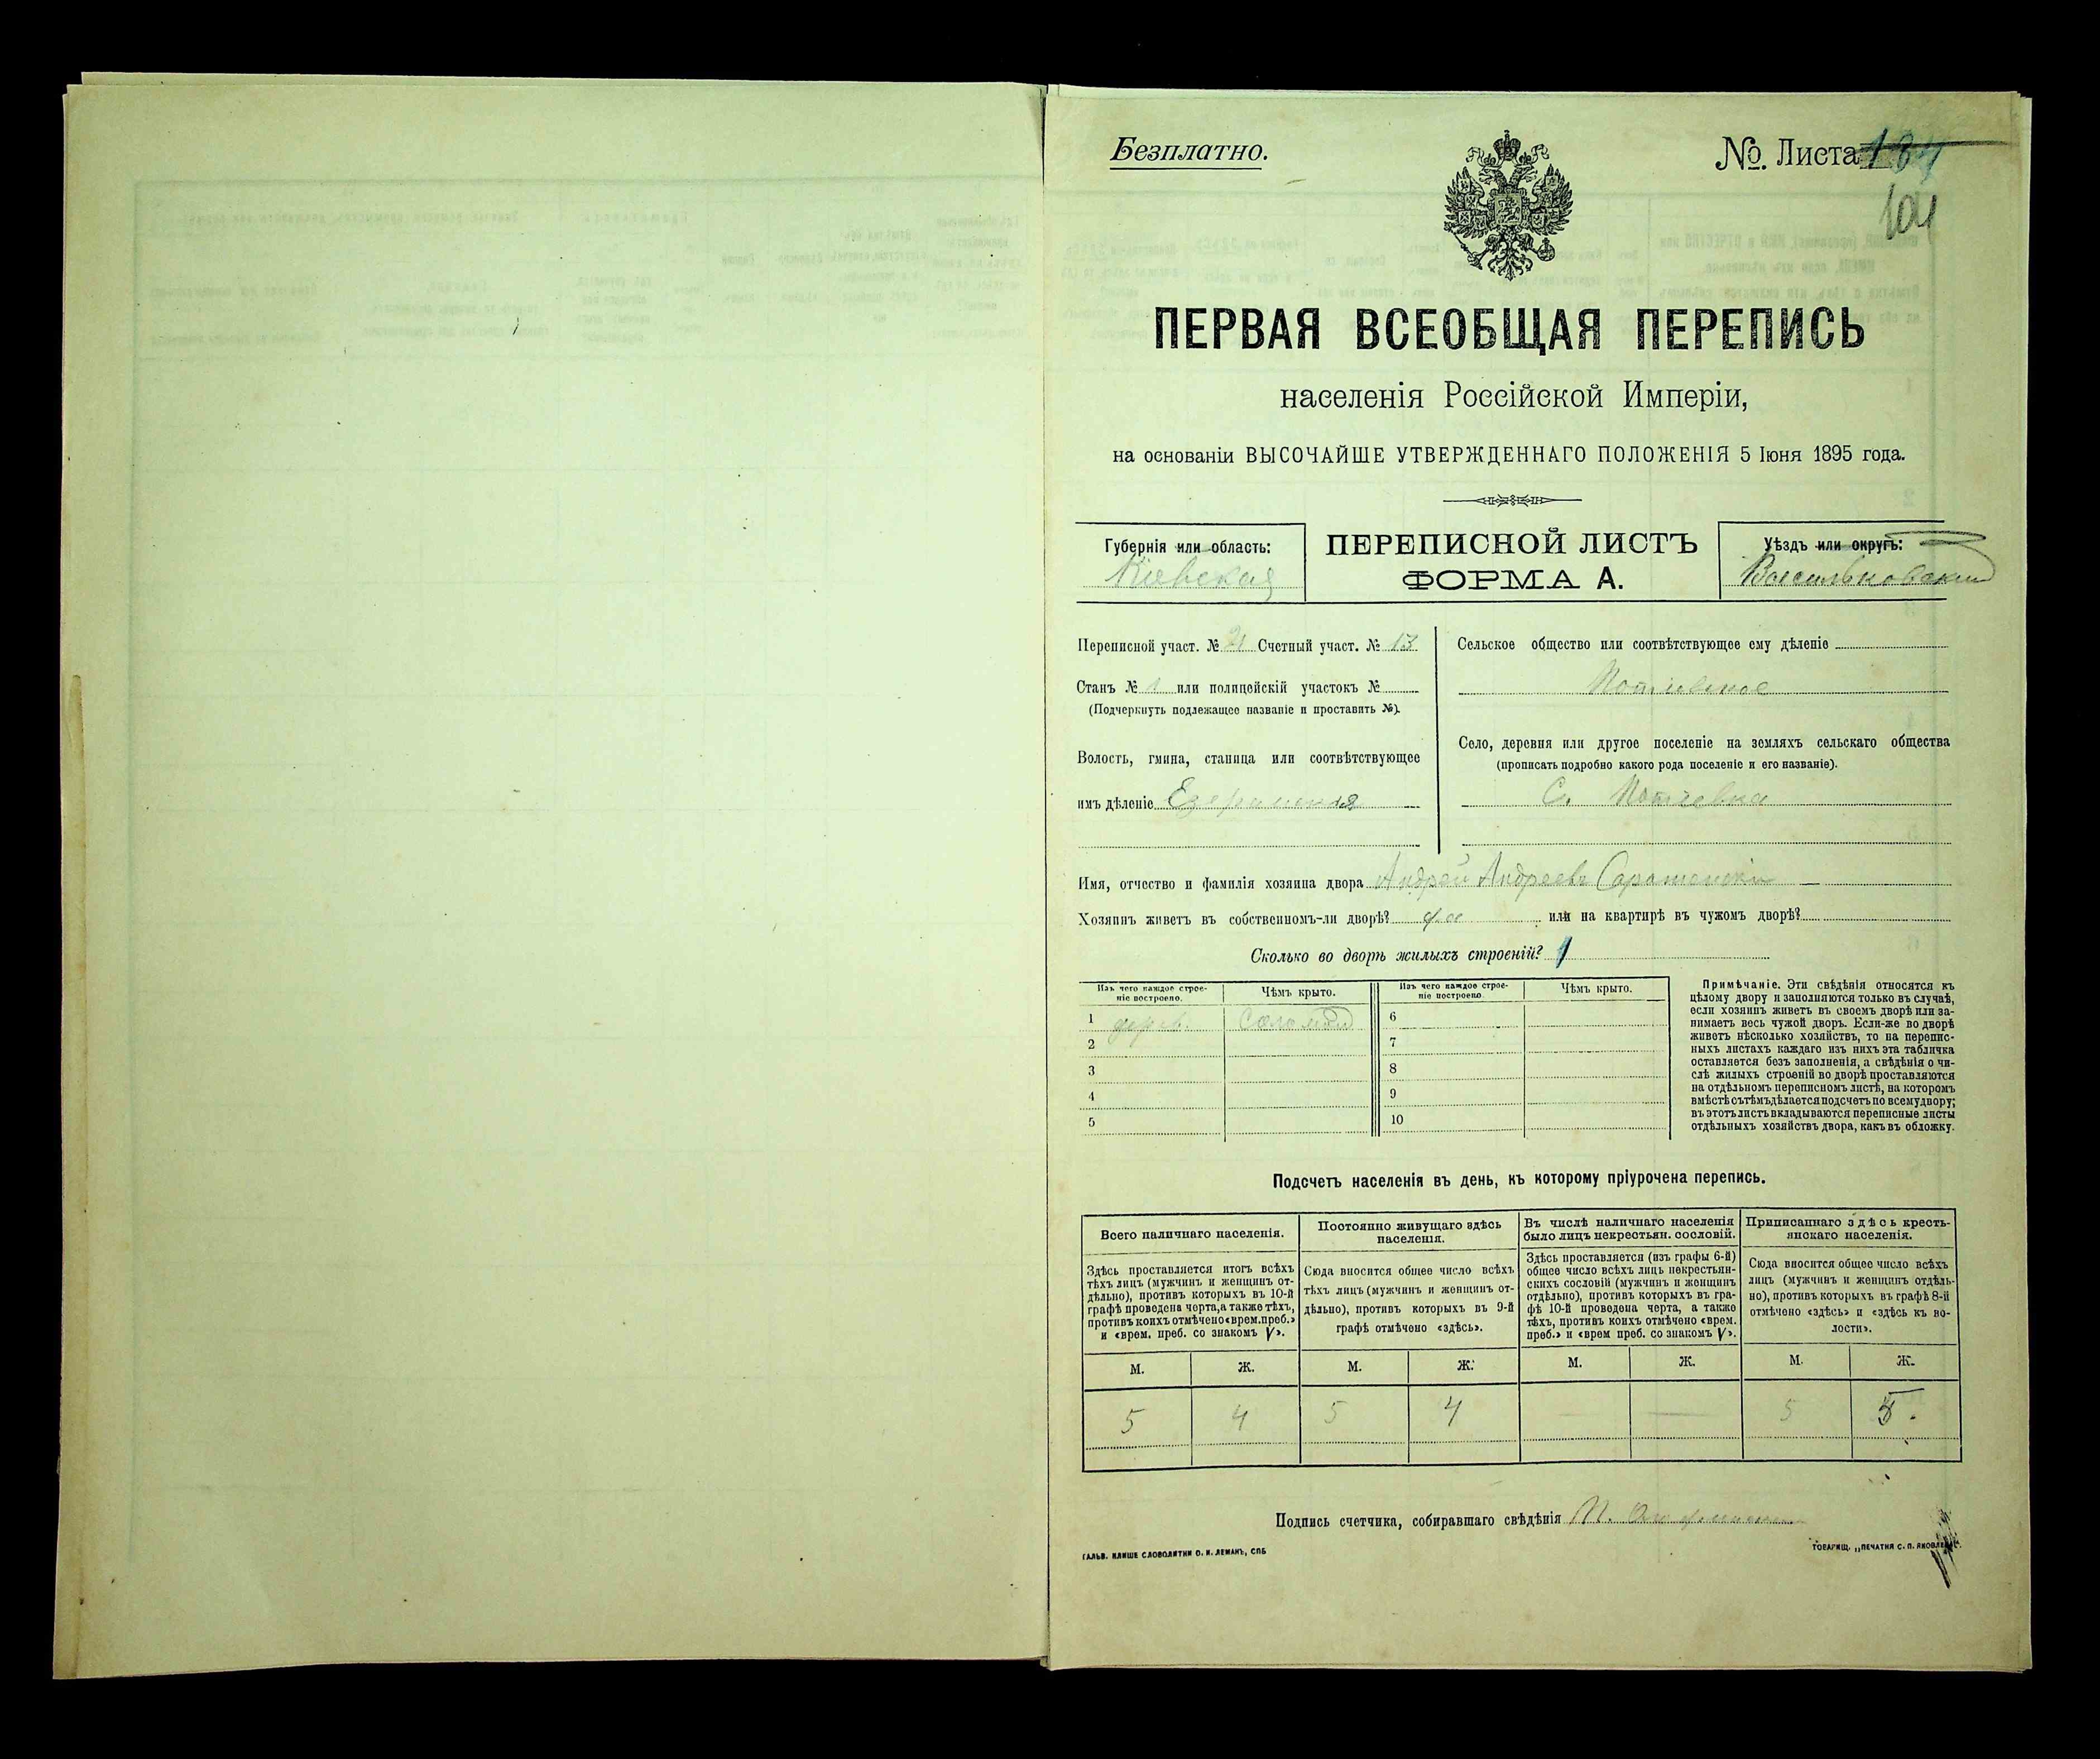 Безплатно.
№. Листа
104
ПЕРВАЯ ВСЕОБЩАЯ ПЕРЕПИСЬ
населенія Россійской Имперіи,
на основаніи ВЫСОЧАЙШЕ УТВЕРЖДЕННАГО ПОЛОЖЕНІЯ 5 Іюня 1895 года.
Губернія или область:
Кіевская
ПЕРЕПИСНОЙ ЛИСТЪ
ФОРМА А.
Уѣздъ или округъ:
Васильковскій
Переписной участ. № 21 Счетный участ. № 13
Станъ № 1 или полицейскій участокъ №
(Подчеркнуть подлежащее названіе и проставить №).
Волость, гмина, станица или соотвѣтствующее
имъ дѣленіе Езерянская
Сельское общество или соотвѣтствующее ему дѣленіе
Потіевское
Село, деревня или другое поселеніе на земляхъ сельскаго общества
(прописать подробно какого рода поселеніе и его названіе).
С. Потіевка
Имя, отчество и фамилія хозяина двора Андрей Андреевъ
Хозяинъ живетъ въ собственномъ-ли дворѣ? да или на квартирѣ въ чужомъ дворѣ?
Сколько во дворѣ жилыхъ строеній? 1
Изъ чего каждое строе-
ніе построено.
Чѣмъ крыто.
Изъ чего каждое строе-
ніе построено.
Чѣмъ крыто.
1 дерев. Соломой 6
2 7
3 8
4 9
5 10
Примѣчаніе. Эти свѣдѣнія относятся къ
цѣлому двору и заполняются только въ случаѣ,
если хозяинъ живетъ въ своемъ дворѣ или за-
нимаетъ весь чужой дворъ. Если-же во дворѣ
живетъ нѣсколько хозяйствъ, то на перепис-
ныхъ листахъ каждаго изъ нихъ эта табличка
оставляется безъ заполненія, а свѣдѣнія о чи-
слѣ жилыхъ строеній во дворѣ проставляются
на отдѣльномъ переписномъ листѣ, на которомъ
вмѣстѣ съ тѣмъ дѣлается подсчетъ по всему двору;
въ этотъ листъ вкладываются переписные листы
отдѣльныхъ хозяйствъ двора, какъ въ обложку.
Подсчетъ населенія въ день, къ которому пріурочена перепись.
Всего наличнаго населенія.
Здѣсь проставляется итогъ всѣхъ
тѣхъ лицъ (мужчинъ и женщинъ от-
дѣльно), противъ которыхъ въ 10-й
графѣ проведена черта, а также тѣхъ,
противъ коихъ отмѣчено «врем. преб.»
и «врем. преб. со знакомъ V».
Постоянно живущаго здѣсь
населенія.
Сюда вносится общее число всѣхъ
тѣхъ лицъ (мужчинъ и женщинъ от-
дѣльно), противъ которыхъ въ 9-й
графѣ отмѣчено «здѣсь».
Въ числѣ наличнаго населенія
было лицъ некрестьян. сословій.
Здѣсь проставляется (изъ графы 6-й)
общее число всѣхъ лицъ некрестьян-
скихъ сословій (мужчинъ и женщинъ
отдѣльно), противъ которыхъ въ гра-
фѣ 10-й проведена черта, а также
тѣхъ, противъ коихъ отмѣчено «врем.
преб.» и «врем преб. со знакомъ V».
Приписаннаго здѣсь кресть-
янскаго населенія.
Сюда вносится общее число всѣхъ
лицъ (мужчинъ и женщинъ отдѣль-
но), противъ которыхъ въ графѣ 8-й
отмѣчено «здѣсь» и «здѣсь къ во-
лости».
М. Ж. М. Ж. М. Ж. М. Ж.
5 4 5 4 — — 5 5.
Подпись счетчика, собиравшаго свѣдѣнія
ГАЛЬВ. КЛИШЕ СЛОВОЛИТНИ О. И. ЛЕМАНЪ, СПБ
ТОВАРИЩ. „ПЕЧАТНЯ С. П. ЯКОВЛЕВА".